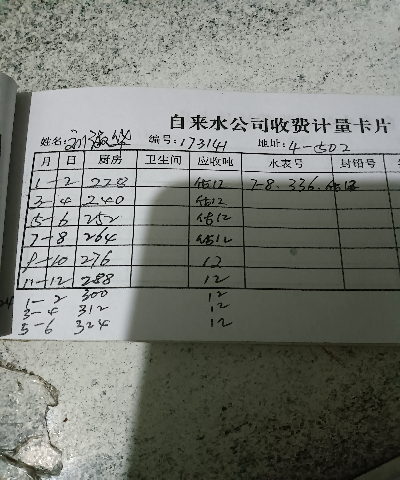 自来水公司收费计量卡片
姓名: 编号:173141 地址:4-502
月 日 厨房 卫生间 应收吨 水表号 封铅号
1-2 228 估12 7-8.336.估12
3-4 240 估12
5-6 252 估12
7-8 264 估12
9-10 276 12
11-12 288 12
1-2 300 12
3-4 312 12
5-6 324 12